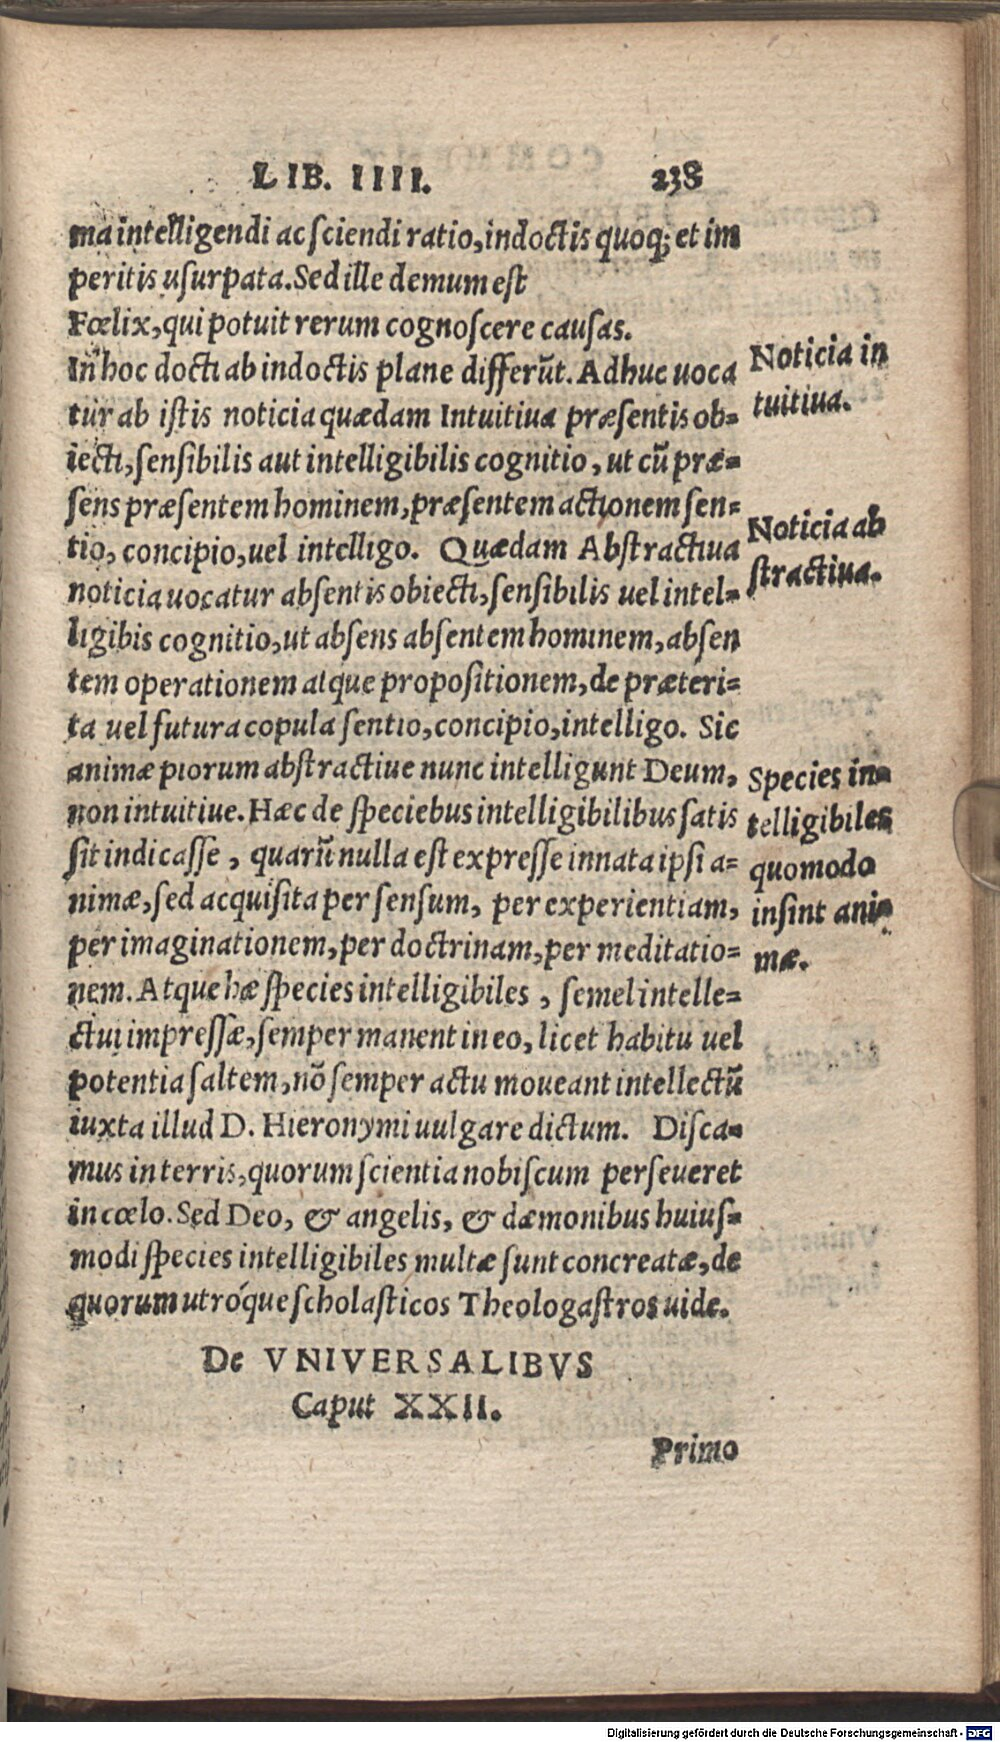 LIB. IIII. 238
ma intelligendi ac sciendi ratio, indoctis quoq; et im
peritis usurpata. Sed ille demum est
Fœlix, qui potuit rerum cognoscere causas.
In hoc docti ab indoctis plane differūt. Adhuc uoca
tur ab istis noticia quædam Intuitiua præsentis ob-
iecti, sensibilis aut intelligibilis cognitio, ut cū præ-
sens præsentem hominem, præsentem actionem sen-
tio, concipio, uel intelligo. Quædam Abstractiua
noticia uocatur absentis obiecti, sensibilis uel intel-
ligibis cognitio, ut absens absentem hominem, absen
tem operationem atque propositionem, de præteri-
ta uel futura copula sentio, concipio, intelligo. Sic
animæ piorum abstractiue nunc intelligunt Deum,
non intuitiue. Hæc de speciebus intelligibilibus satis
sit indicasse, quarū nulla est expresse innata ipsi a-
nimæ, sed acquisita per sensum, per experientiam,
per imaginationem, per doctrinam, per meditatio-
nem. Atque hæ species intelligibiles, semel intelle-
ctui impressæ, semper manent in eo, licet habitu uel
potentia saltem, nō semper actu moueant intellectū
iuxta illud D. Hieronymi uulgare dictum. Disca-
mus in terris, quorum scientia nobiscum perseueret
in cœlo. Sed Deo, & angelis, & dæmonibus huius-
modi species intelligibiles multæ sunt concreatæ, de
quorum utróque scholasticos Theologastros uide.
De VNIVERSALIBVS
Caput XXII.
Primo
Noticia in
tuitiua.
Noticia ab
stractiua.
Species in-
telligibiles
quomodo
insint ani-
mæ.
Digitalisierung gefördert durch die Deutsche Forschungsgemeinschaft - DFG